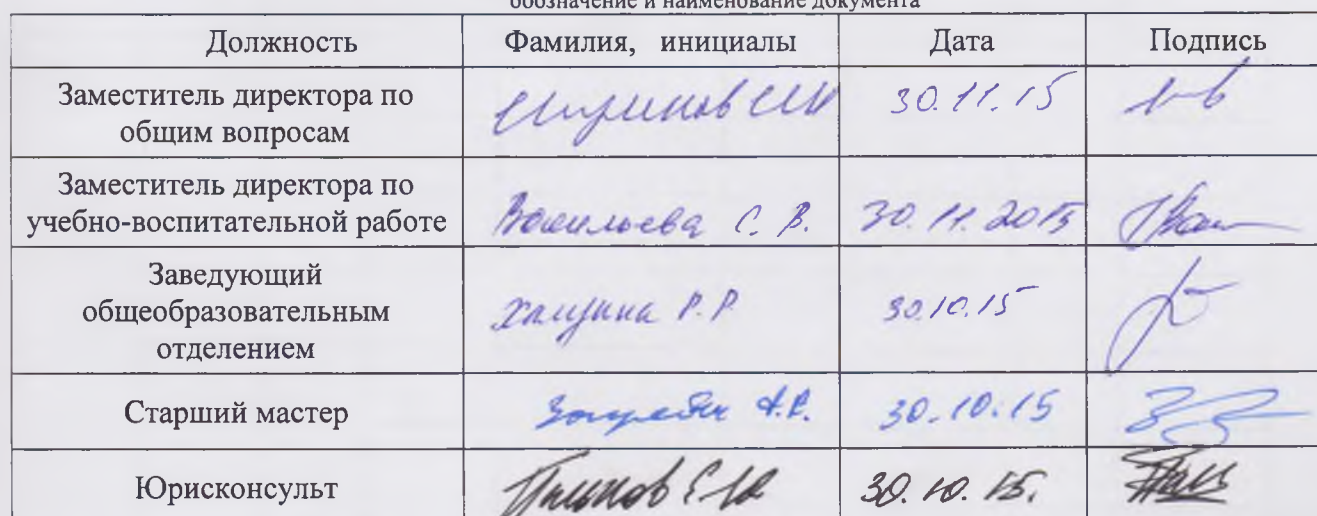 обозначение и наименование документа
Должность Фамилия, инициалы Дата Подпись
Заместитель директора по
общим вопросам
30.11.15
Заместитель директора по
учебно-воспитательной работе
Васильева С. В. 30.11.2015
Заведующий
общеобразовательным
отделением
Р.Р 30.10.15
Старший мастер А.Р. 30.10.15
Юрисконсульт 30.10.15.